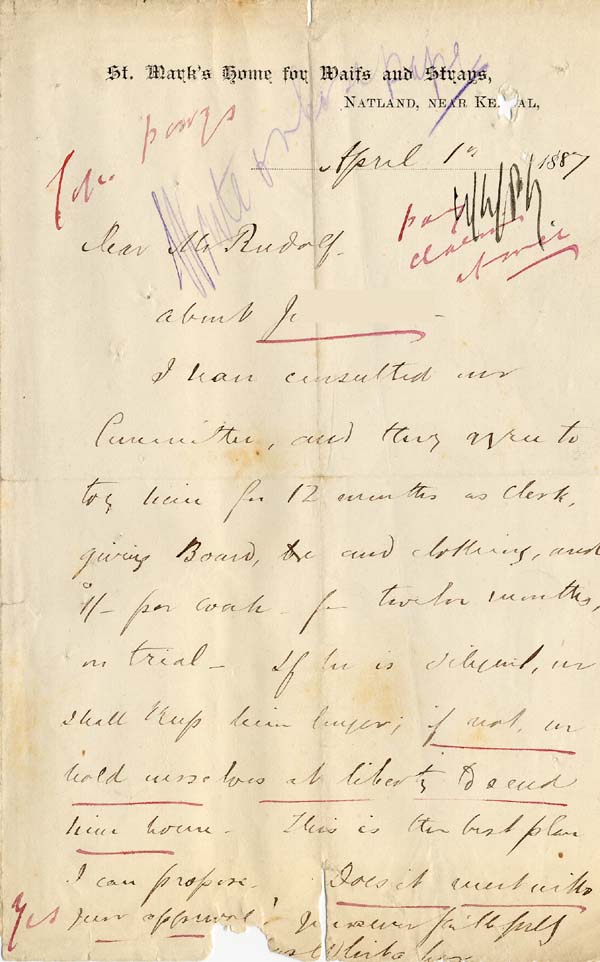 St. Mark's Home for Waifs and Strays,
Natland, near Kendal,
April 1st 1887
Dear Mr Rudolf.
about J
I have consulted our
Committee, and they agree to
try him for 12 months as Clerk,
giving Board, &c and clothing, and
1/- per week for twelve months,
on trial - If he is diligent, we
shall keep him longer; if not, we
hold ourselves at liberty to send
him home. This is the best plan
I can propose. Does it meet with
Yes
your approval? faithfully